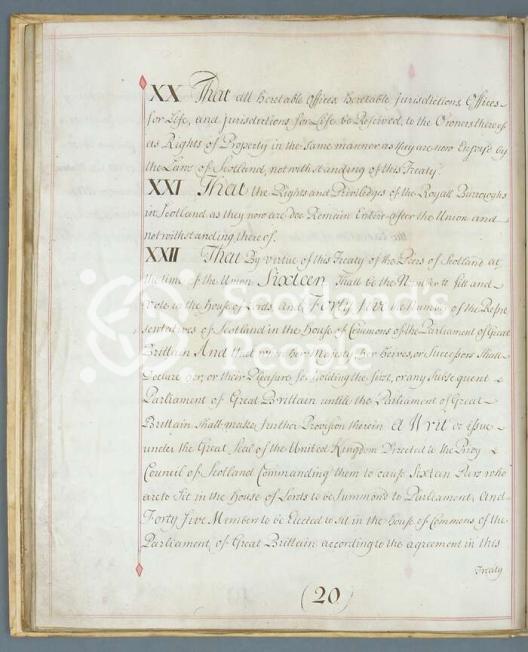 XX That all heretable Offices heretable Jurisdictions Offices
for Life, and Jurisdictions for Life be Reserved, to the Owners thereof
as Rights of Property in the Same manner as they are now Enjoy'd by
the Laws of Scotland, notwithstanding of this Treaty.
XXI That the Rights and Priviledges of the Royall Burroughs
in Scotland as they now are Doe Remain Entire after the Union and
notwithstanding thereof.
XXII That By virtue of this Treaty of the Peers of Scotland at
the time of the Union Sixteen Shall be the Number to Sitt and
Vote in the house of Lords and Forty five the Number of the Repre
sentatives of Scotland in the house of Commons of the Parliament of Great
Brittain And that when her Majesty her heires, or Successors Shall
Declare her, or their Pleasure for holding the first, or any Subsequent
Parliament of Great Brittain untill the Parliament of Great
Brittain Shall make further Provision therein A Writ do issue
under the Great Seal of the United Kingdom Directed to the Privy
Council of Scotland Commanding them to cause Sixteen Peers who
are to Sit in the house of Lords to be Summond to Parliament, And
Forty five Members to be Elected to Sit in the house of Commons of the
Parliament, of Great Brittain according to the agreement in this
Treaty
(20)
Scotland's
People